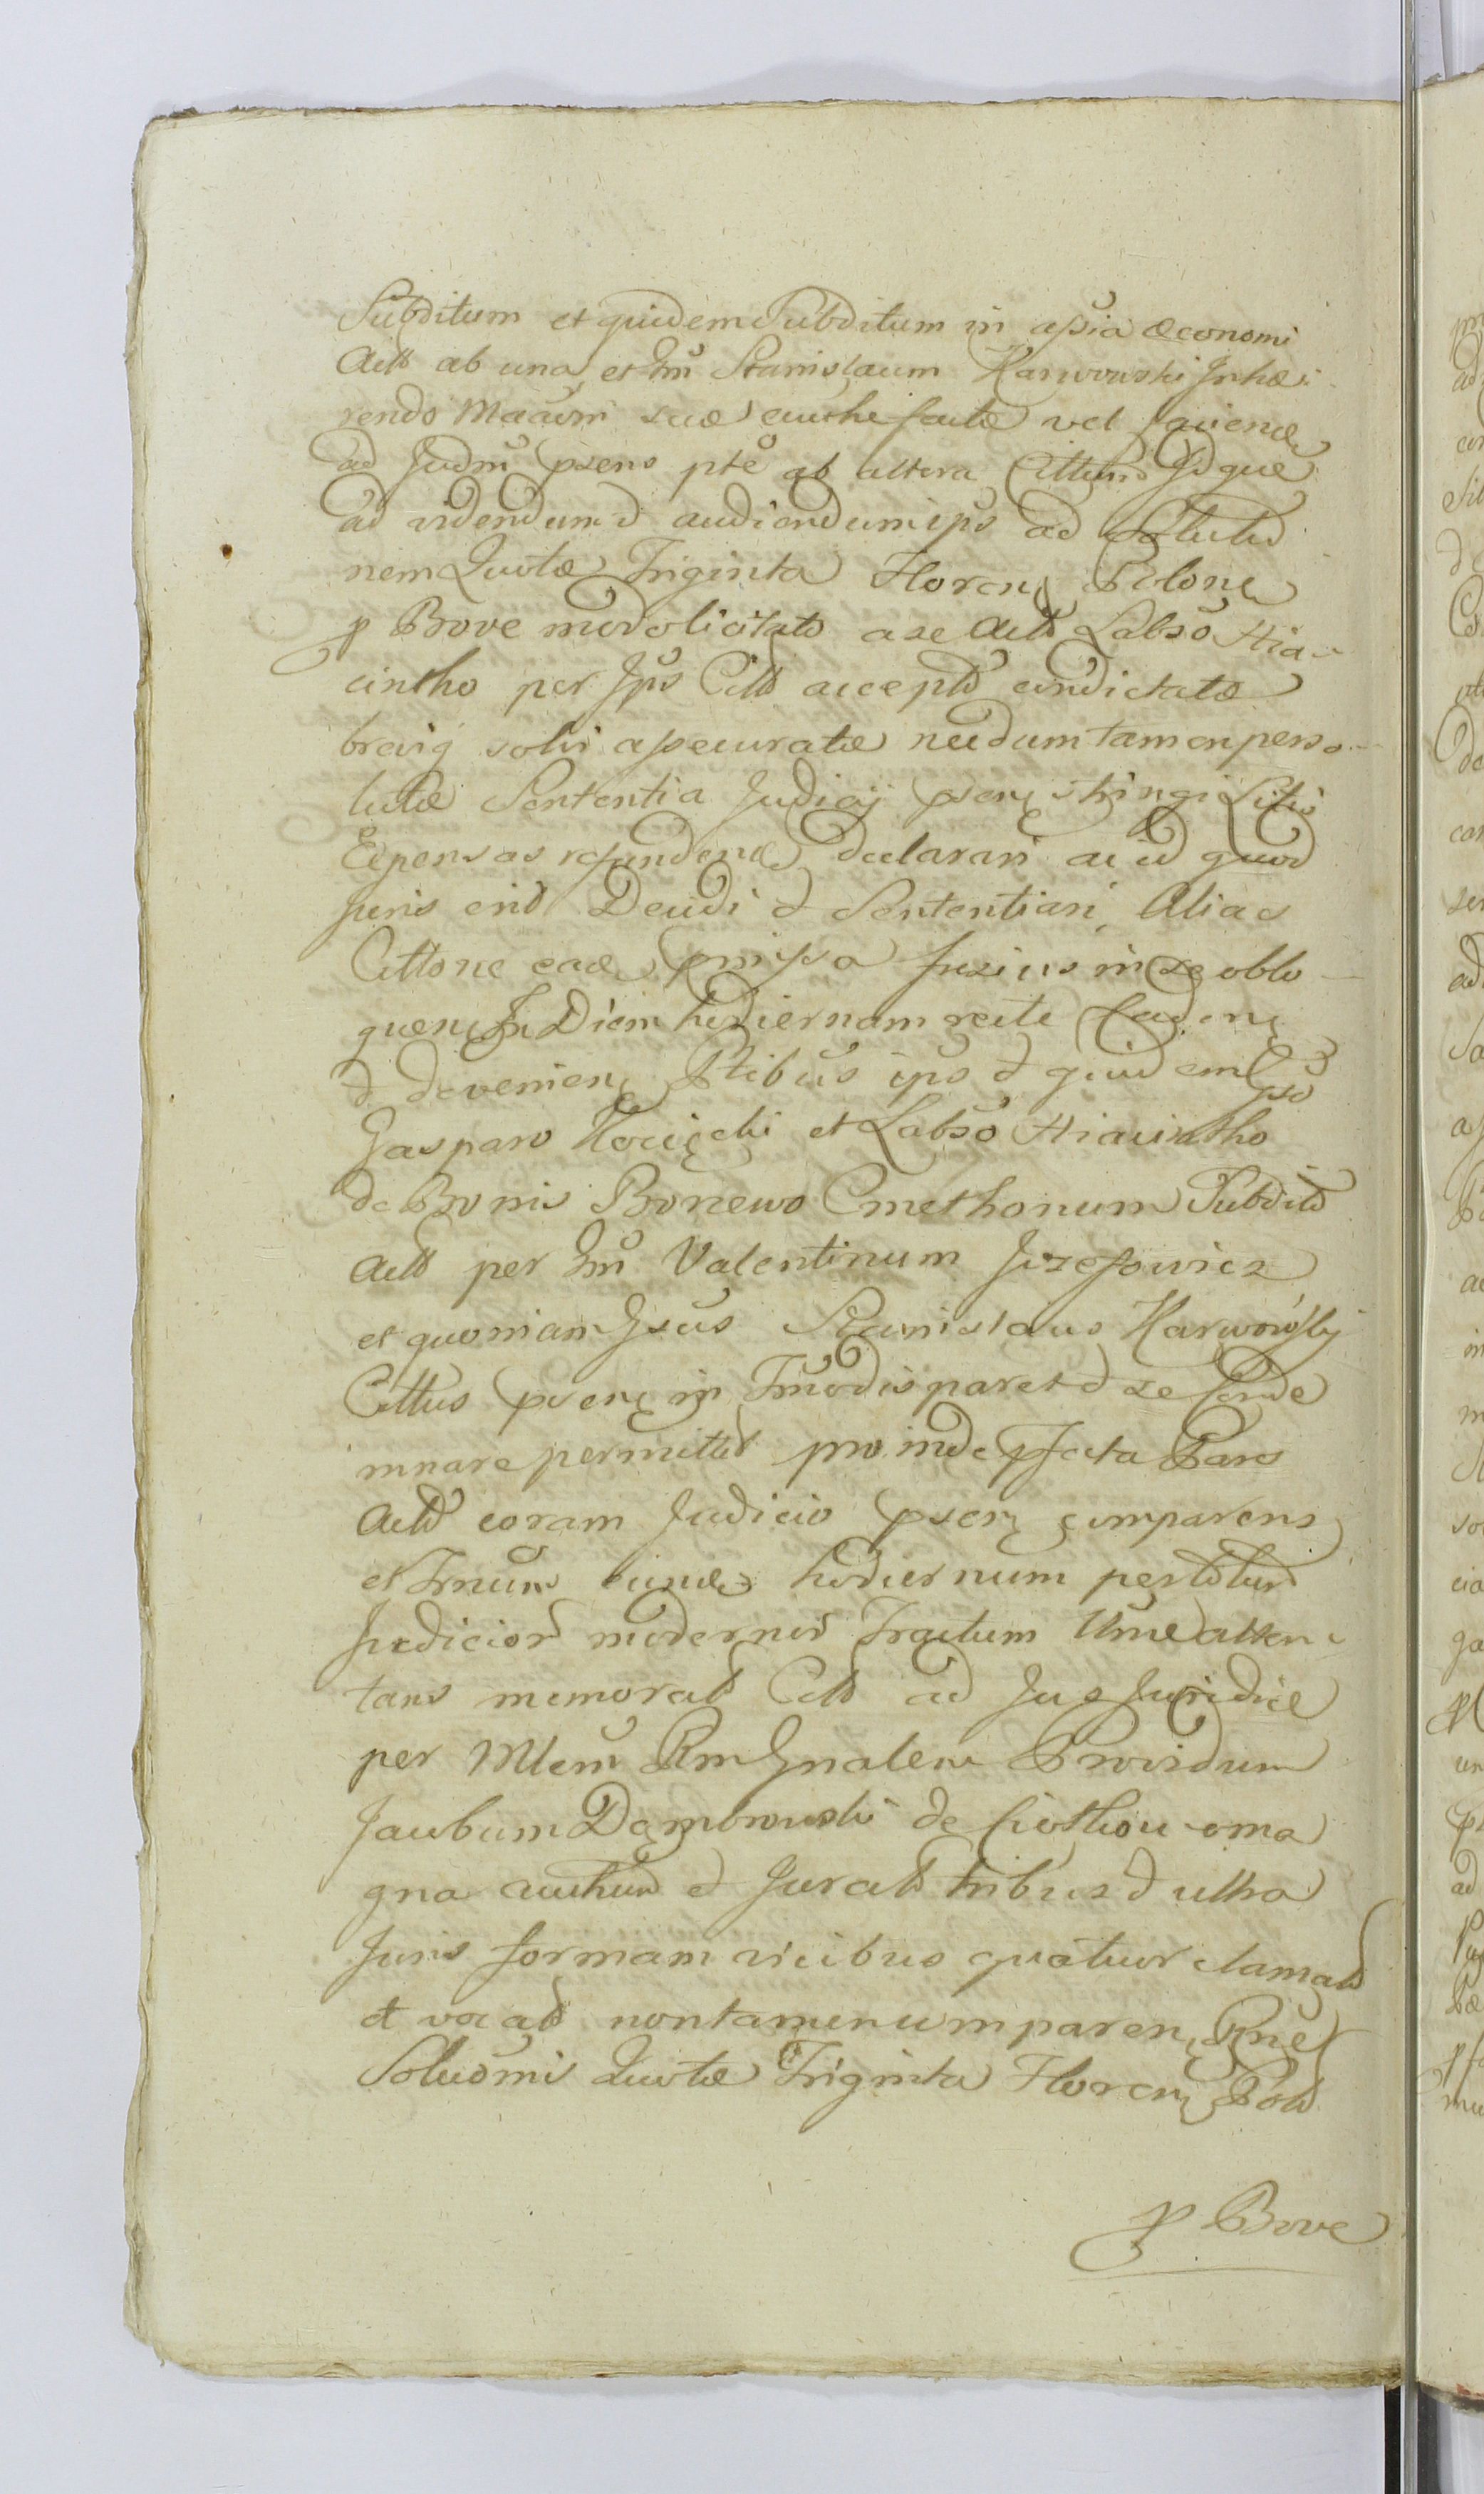 Subditum et quidem Subditum in assia œconomi
Actt ab una et Gnm Stanislaum Karwowski Inhæ-
rendo
ad Judm psens pte ab altera Cittum Idque
ad videndum & audiendum ips ad Solutio
nem Quotæ Triginta Floren Polon
p Bove modo licitato a se Actt Labso Hia-
cintho per Ips Citt accepto condictatæ
brevig solvi assecuratæ necdum tamen perso-
lutæ Sententia Judicij psen stringi Litis
Expensas refundend declarari ac id quod
juris erit Decidi & Sententiari, Alias
Cittone eade pmissa fusius in se oblo-
quen In Diem hodiernam recte Caden
& devenien Ptibus ips & quidem Gso
Gasparo Kocięcki et Labso Hiacintho
de Bonis Bonewo Cmethonum Subdito
Actt per Gnm Valentinum Jozefowicz
et quoniam Gsus Stanislaus Karwowsky
Cittus psen in Tmo dis paret & se conde
mnare permittit pro inde pfecta Pars
Actt coram Judicio psen comparens
et Trnum hodiernum
Judicior modernor Tractum Ulme atten-
tans memorat Citt ad Jus Juridice
per Mlem Rm Gnalem Providum
Jacobum Dąmbrowski de Ciolkow oma
gna authen & Jurat tribus & ultra
Juris formam vicibus quatuor clamatt
et vocatt non tamen comparen Rone
Soluonis Quotæ Triginta Floren Polo
p Bove